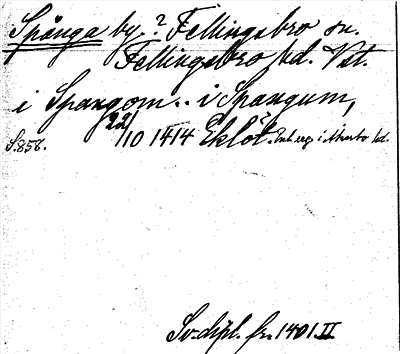 Spånga by ? Fellingsbro sn.
Fellingsbro hd. Vst.
i Spangom .. i Spangum,
S. 858. 22/10 1414 Eklöt. i Åkerbo hd.
Sv. dipl. fr. 1401. II